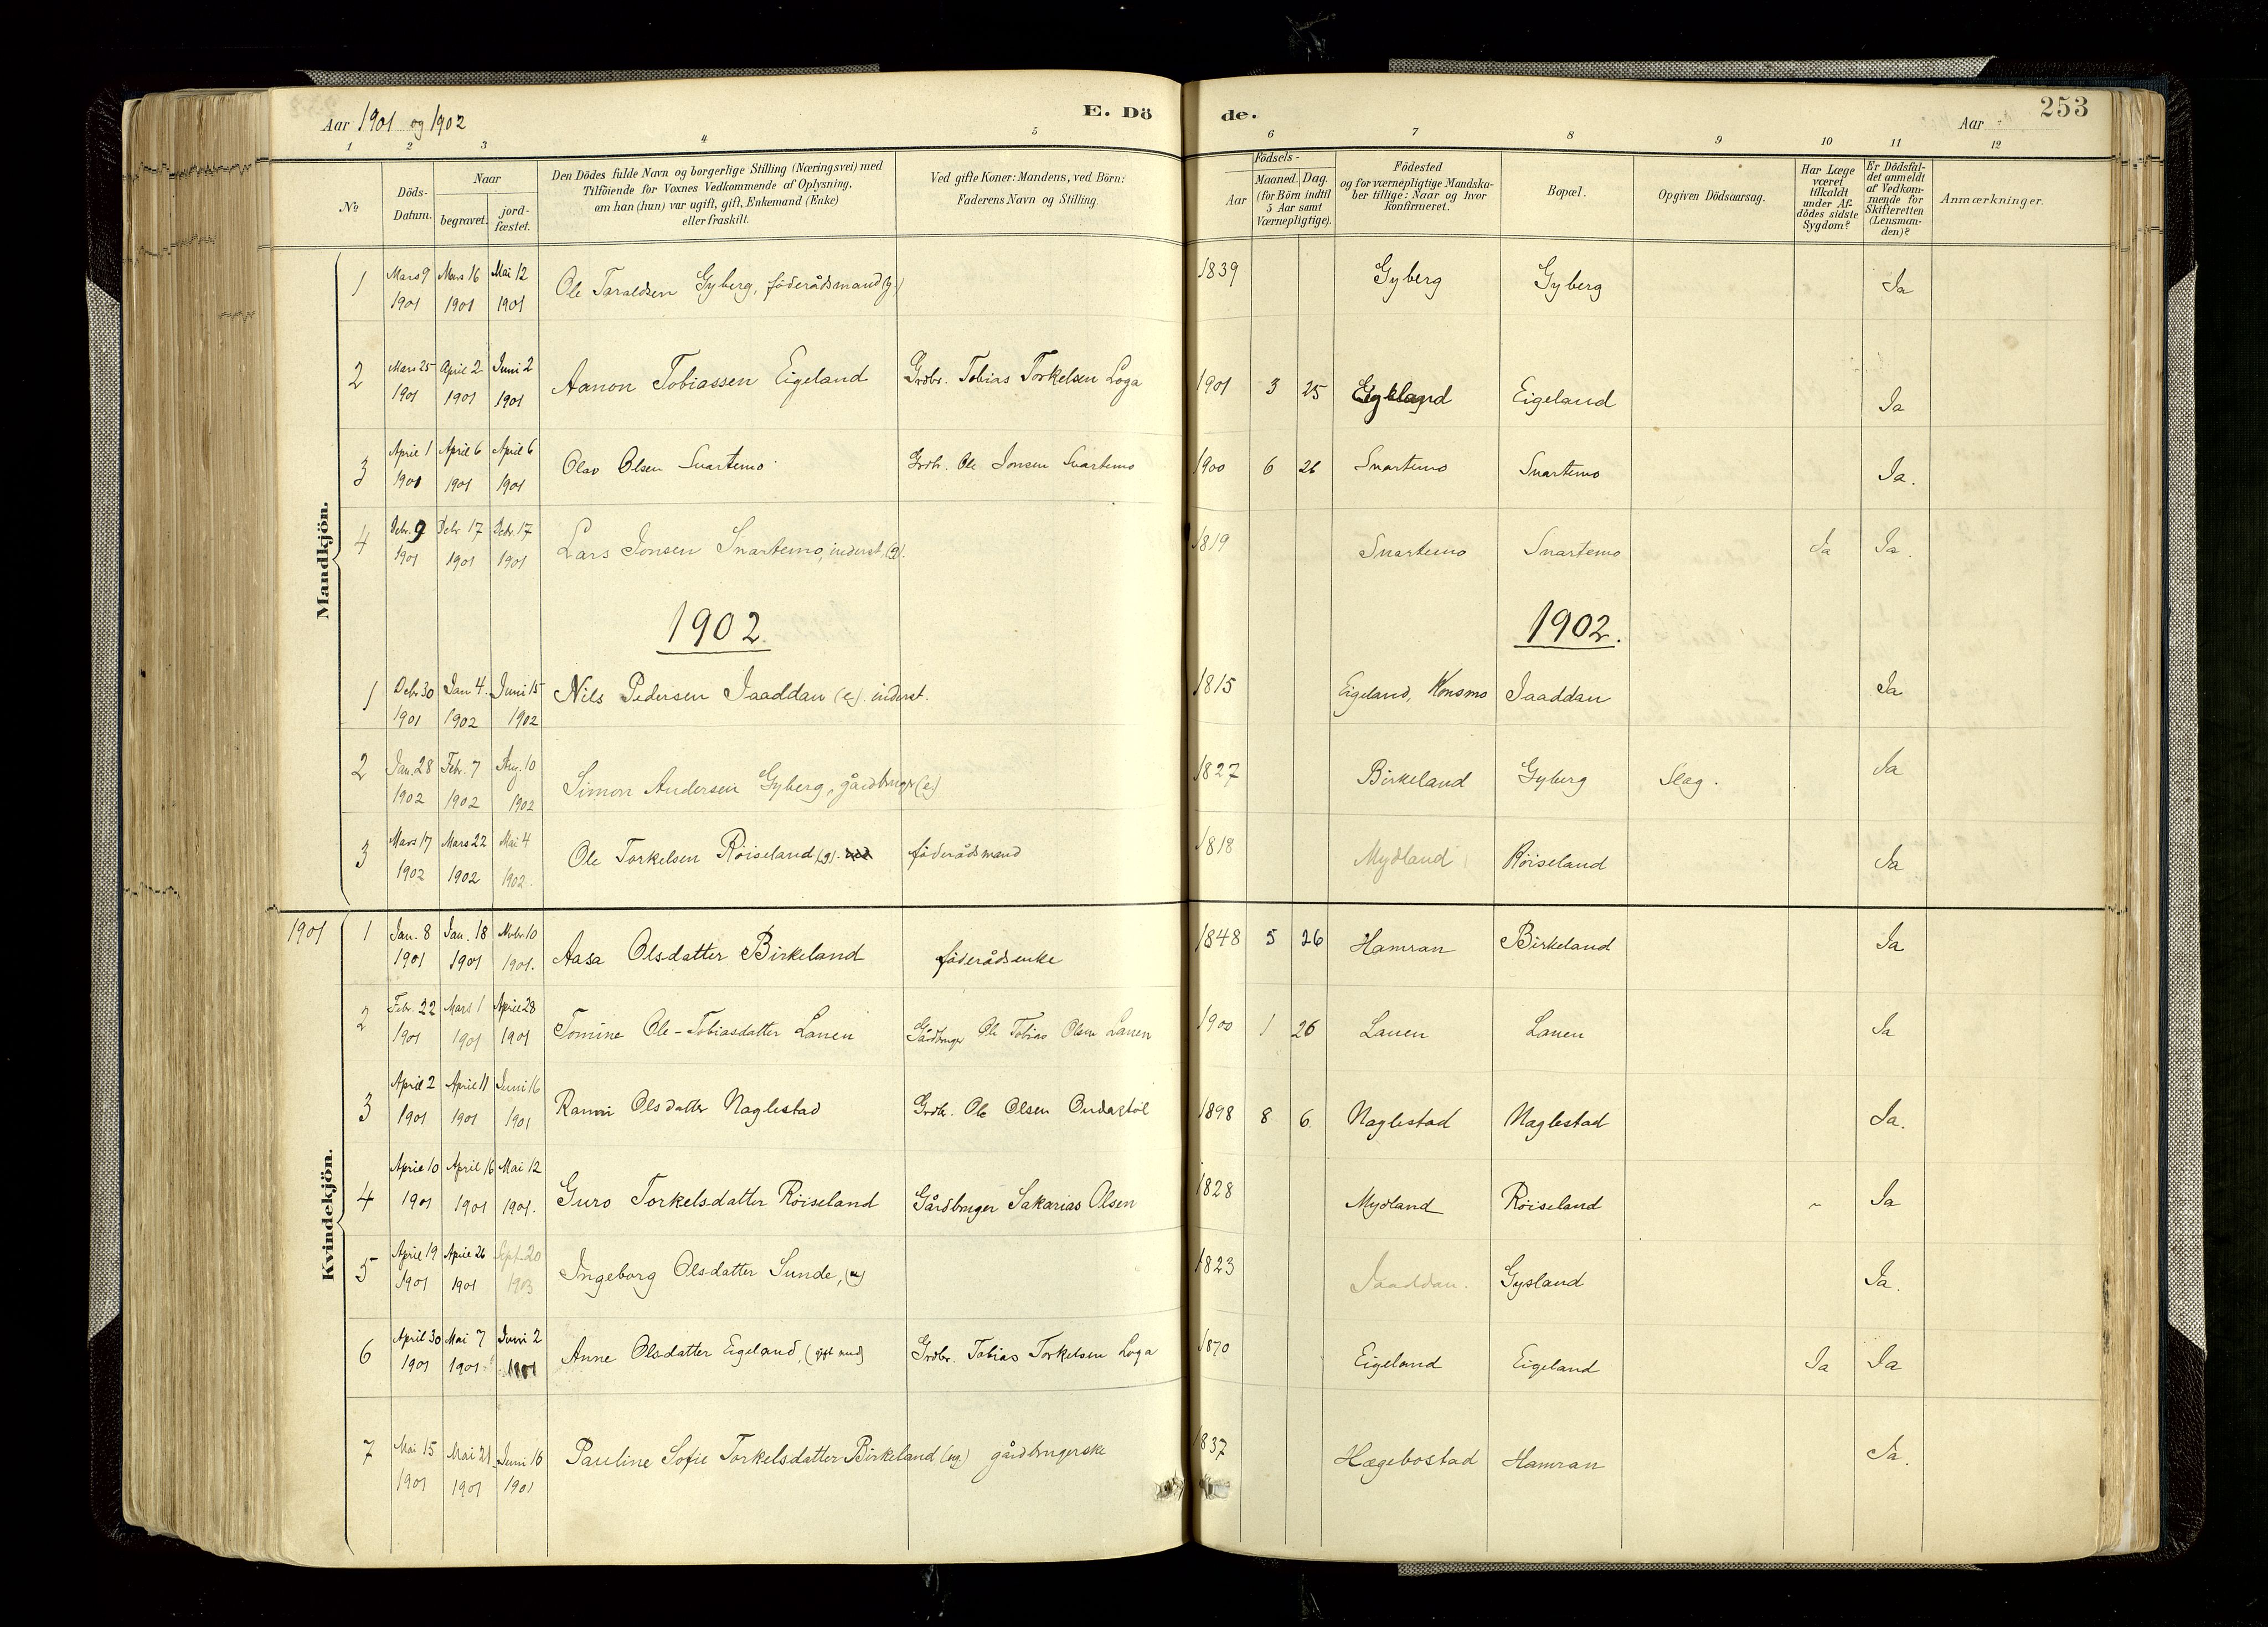 Aar 1901 og 1902
E. Dö
de.
Aar
253
1 2 3 4 5 6 7 8 9 10 11 12
No
Döds-Datum.
Naar
begravet.
jord-fæstet.
Den Dödes fulde Navn og borgerlige Stilling (Næringsvei) med
Tilföiende for Voxnes Vedkommende af Oplysning,
om han (hun) var ugift, gift, Enkemand (Enke)
eller fraskilt.
Ved gifte Koner: Mandens, ved Börn:
Faderens Navn og Stilling.
Födsels-
Aar
Maaned. Dag.
(for Börn indtil
5 Aar samt
Værnepligtige).
Födested
og for værnepligtige Mandska-
ber tillige: Naar og hvor
konfirmeret.
Bopæl.
Opgiven Dödsaarsag.
Har Læge
været
tilkaldt
under Af-
dödes sidste
Sygdom?
Er Dödsfal-
det anmeldt
af Vedkom-
mende for
Skifteretten
(Lensman-
den)?
Anmærkninger.
Mandkjön.
1 Mars 9 1901 Mars 16 1901 Mai 12 1901 Ole Taraldsen Gyberg, föderådsmand (g.) 1839 Gyberg Gyberg Ja
2 Mars 25 1901 April 2 1901 Juni 2 1901 Aanon Tobiassen Eigeland Grdbr. Tobias Torkelsen Loga 1901 3 25 Eigeland Eigeland Ja
3 April 1 1901 April 6 1901 April 6 1901 Olav Olsen Snartemo Grdb. Ole Jonsen Snartemo 1900 6 26 Snartemo Snartemo Ja.
4 Debr. 9 1901 Debr 17 1901 Debr. 17 1901 Lars Jonsen Snartemo, inderst, (g). 1819 Snartemo Snartemo Ja Ja.
1902. 1902.
1 Debr 30 1901 Jan 4. 1902 Juni 15 1902 Nils Pedersen Jaaddan (e). inderst. 1815 Eigeland, Konsmo Jaaddan Ja
2 Jan. 28 1902 Febr. 7 1902 Aug. 10 1902 Simon Andersen Gyberg, gårdbruger (e) 1827 Birkeland Gyberg Slag. Ja
3 Mars 17 1902 Mars 22 1902 Mai 4 1902. Ole Torkelsen Röiseland (g). föderådsmand 1818 Mydland Röiseland Ja
Kvindekjön.
1901 1 Jan. 8 1901 Jan. 18 1901 Nvbr 10 1901. Aasa Olsdatter Birkeland föderådsenke 1848 5 26 Hamran Birkeland Ja
2 Febr. 22 1901 Mars 1 1901 April 28 1901 Tomine Ole-Tobiasdatter Lauen Gårdbruger Ole Tobias Olsen Lauen 1900 1 26 Lauen Lauen Ja
3 April 2 1901 April 11 1901 Juni 16 1901 Olsdatter Naglestad Grdb. Ole Olsen 1898 8 6 Naglestad Naglestad Ja.
4 April 10 1901 April 16 1901 Mai 12 1901. Guro Torkelsdatter Röiseland Gårdbruger Sakarias Olsen 1828 Mydland Röiseland Ja
5 April 19 1901 April 26 1901 Sept. 20 1903 Ingeborg Olsdatter Sunde, 1823 Jaaddan. Gysland Ja.
6 April 30 1901 Mai 7 1901 Juni 2 1901 Anne Olsdatter Eigeland, (gift med) Grdbr. Tobias Torkelsen Loga 1870 Eigeland Eigeland Ja Ja
7 Mai 15 1901 Mai 21 1901 Juni 16 1901 Pauline Sofie Torkelsdatter Birkeland (ug.) gårdbrugerske 1837 Hægebostad Hamran Ja.